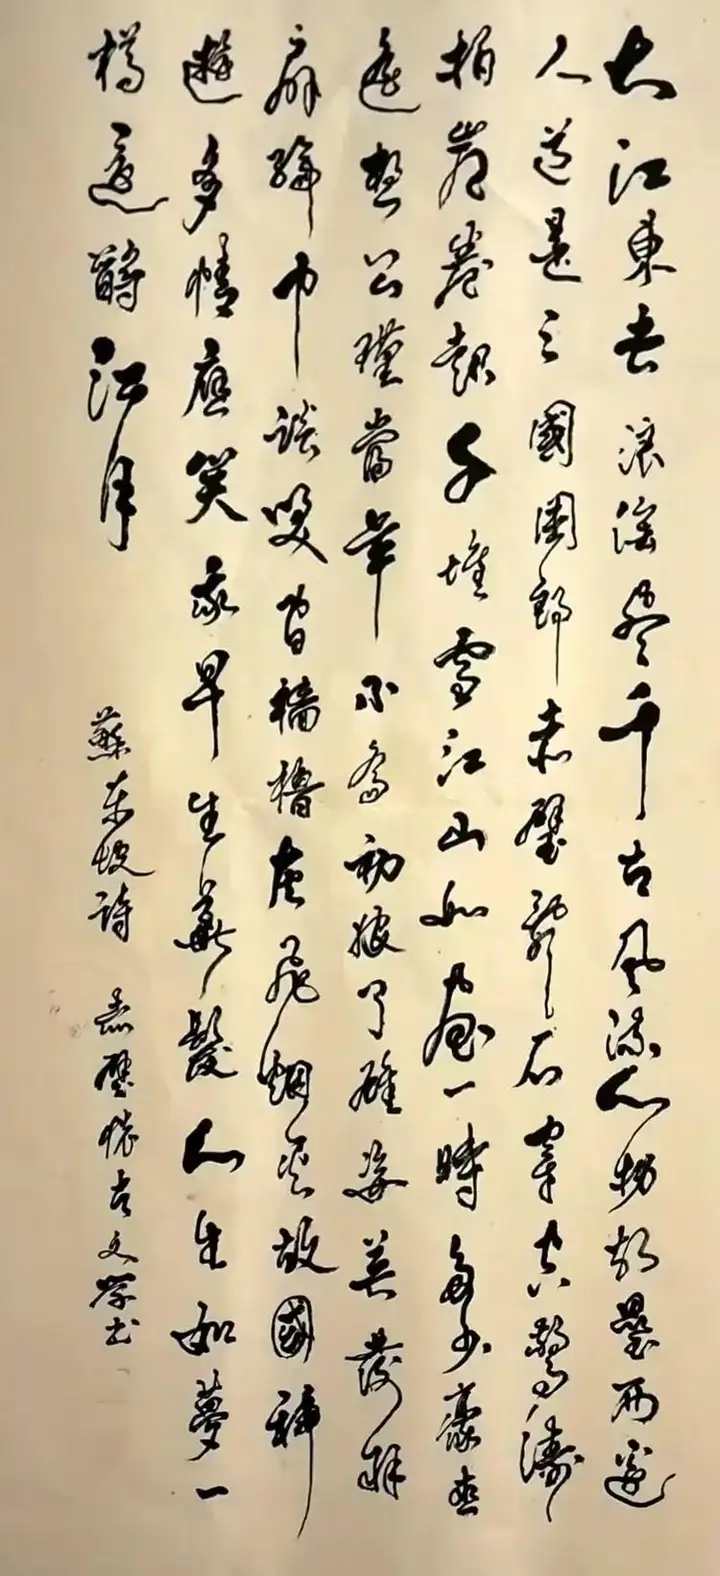 大江東去浪淘盡千古風流人物故壘西邊
人道是三國周郎赤壁亂石穿空驚濤
拍岸卷起千堆雪江山如畫一時多少豪杰
遙想公瑾當年小喬初嫁了雄姿英發羽
扇綸巾談笑間檣櫓灰飛烟灭故國神
遊多情應笑我早生華髮人生如夢一
樽還酹江月
蘇東坡詩 赤壁懷古文學书